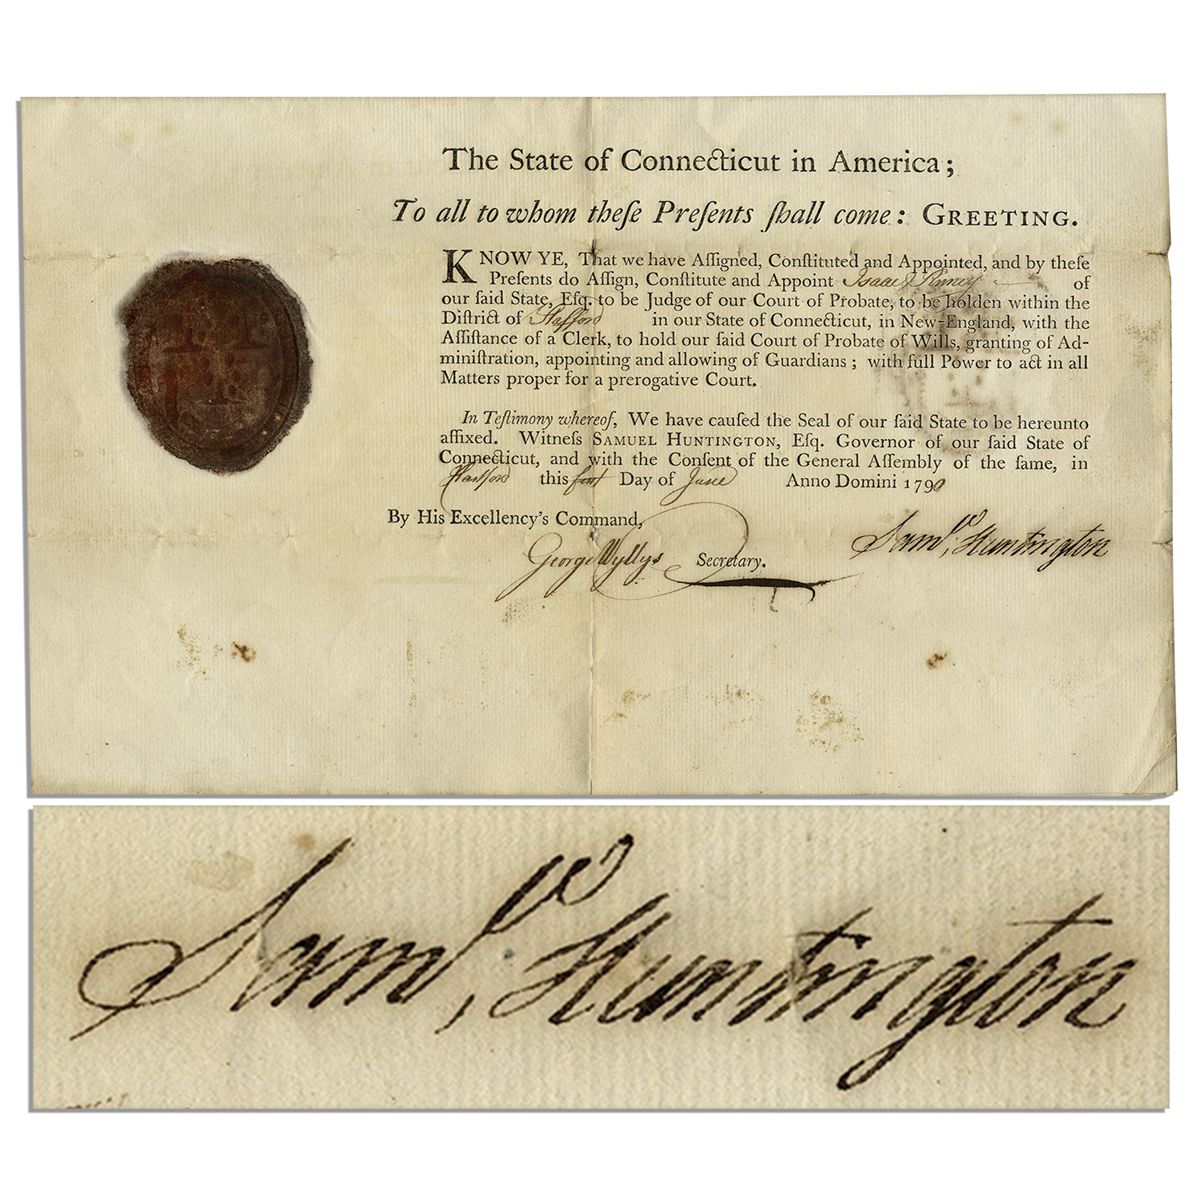 The State of Connecticut in America;
To all to whom theſe Preſents ſhall come: GREETING.
KNOW YE, That we have Aſſigned, Conſtituted and Appointed, and by theſe
Preſents do Aſſign, Conſtitute and Appoint Isaac Pinney of
our ſaid State, Eſq. to be Judge of our Court of Probate, to be holden within the
Diſtrict of Stafford in our State of Connecticut, in New-England, with the
Aſſiſtance of a Clerk, to hold our ſaid Court of Probate of Wills, granting of Ad-
miniſtration, appointing and allowing of Guardians; with full Power to act in all
Matters proper for a prerogative Court.
In Teſtimony whereof, We have cauſed the Seal of our ſaid State to be hereunto
affixed. Witneſs SAMUEL HUNTINGTON, Eſq. Governor of our ſaid State of
Connecticut, and with the Conſent of the General Aſſembly of the ſame, in
Hartford this Day of June Anno Domini 1790
By His Excellency's Command,
Saml. Huntington
George Wyllys Secretary.
Saml. Huntington